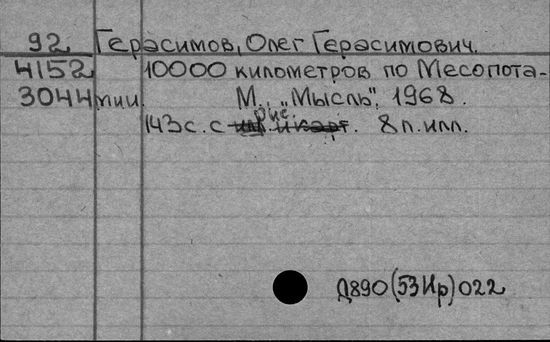 92 Герасимов, Олег Герасимович.
4152 10000 километров по Месопота-
3044 мии. М., „Мысль", 1968.
рис.
143 с. с илл. и карт. 8 л. илл.
Д890(53Ир)022